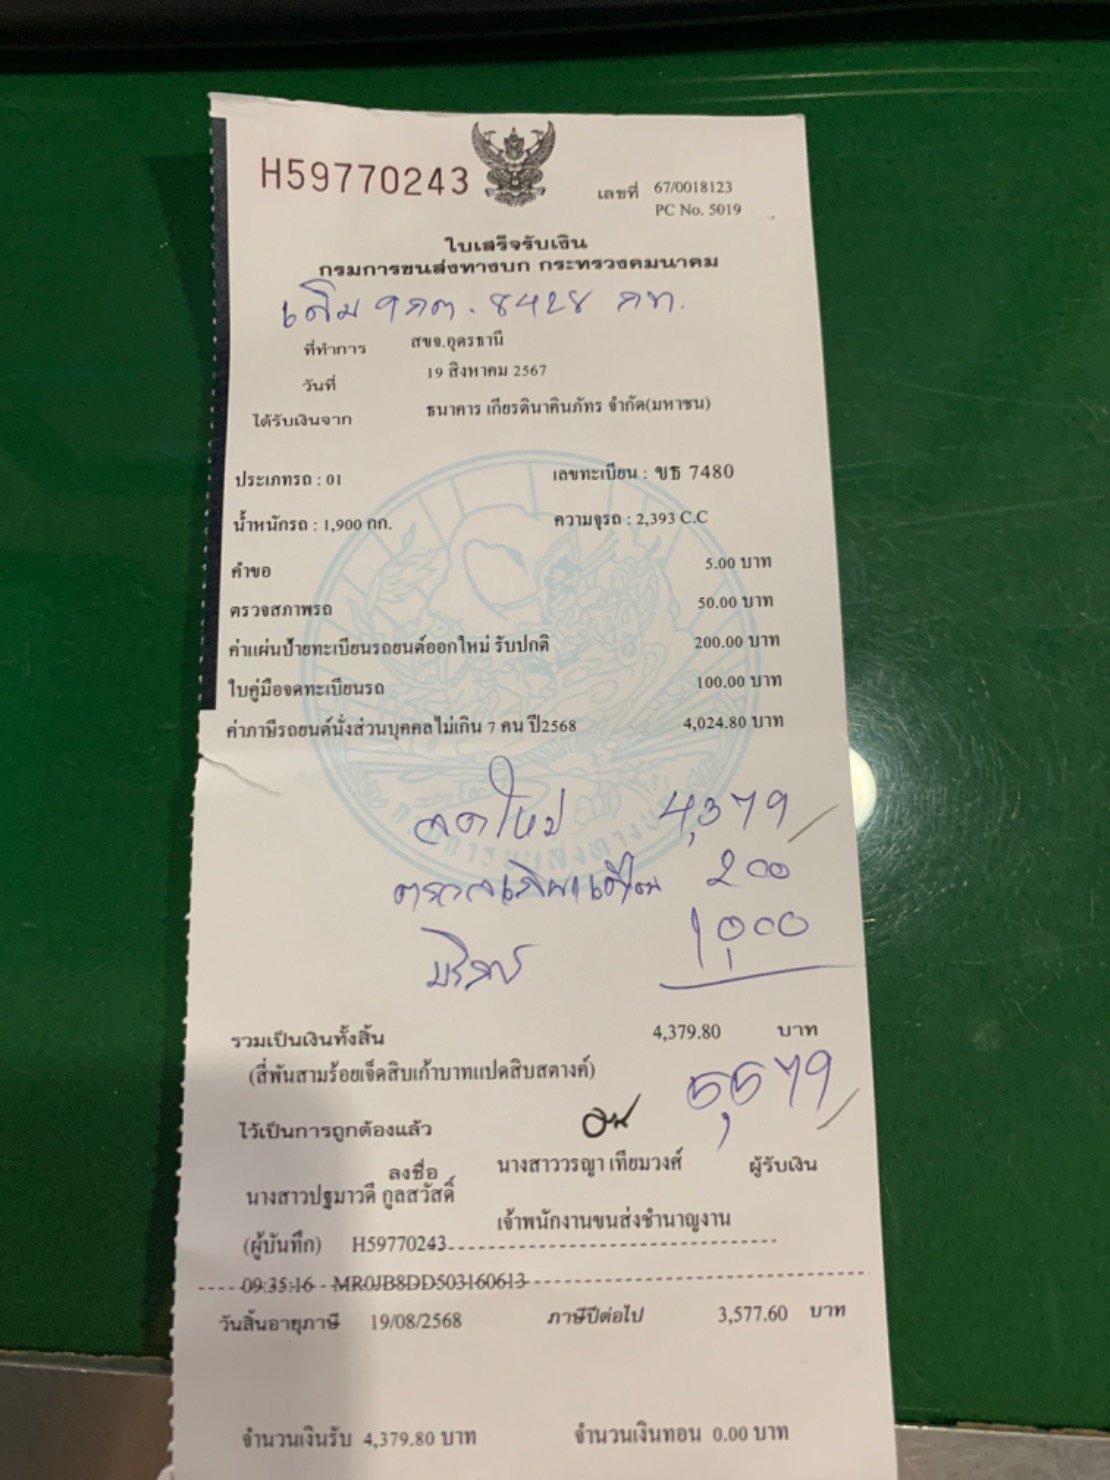 H59770243
เลขที่ 67/0018123
PC No. 5019
ใบเสร็จรับเงิน
กรมการขนส่งทางบก กระทรวงคมนาคม
เดิม 9กต. 8428 กท.
ที่ทำการ สขจ.อุดรธานี
วันที่ 19 สิงหาคม 2567
ได้รับเงินจาก ธนาคาร เกียรตินาคินภัทร จำกัด(มหาชน)
ประเภทรถ : 01 เลขทะเบียน : ขธ 7480
น้ำหนักรถ : 1,900 กก. ความจุรถ : 2,393 C.C
คำขอ 5.00 บาท
ตรวจสภาพรถ 50.00 บาท
ค่าแผ่นป้ายทะเบียนรถยนต์ออกใหม่ รับปกติ 200.00 บาท
ใบคู่มือจดทะเบียนรถ 100.00 บาท
ค่าภาษีรถยนต์นั่งส่วนบุคคลไม่เกิน 7 คน ปี2568 4,024.80 บาท
จดใหม่ 4,379
200
บริการ 1,000
รวมเป็นเงินทั้งสิ้น 4,379.80 บาท
(สี่พันสามร้อยเจ็ดสิบเก้าบาทแปดสิบสตางค์) 5,579
ไว้เป็นการถูกต้องแล้ว
ลงชื่อ นางสาววรญา เทียมวงศ์ ผู้รับเงิน
นางสาวปฐมาวดี กูลสวัสดิ์
เจ้าพนักงานขนส่งชำนาญงาน
(ผู้บันทึก) H59770243
09:35:16 - MR0JB8DD503160613
วันสิ้นอายุภาษี 19/08/2568 ภาษีปีต่อไป 3,577.60 บาท
จำนวนเงินรับ 4,379.80 บาท จำนวนเงินทอน 0.00 บาท